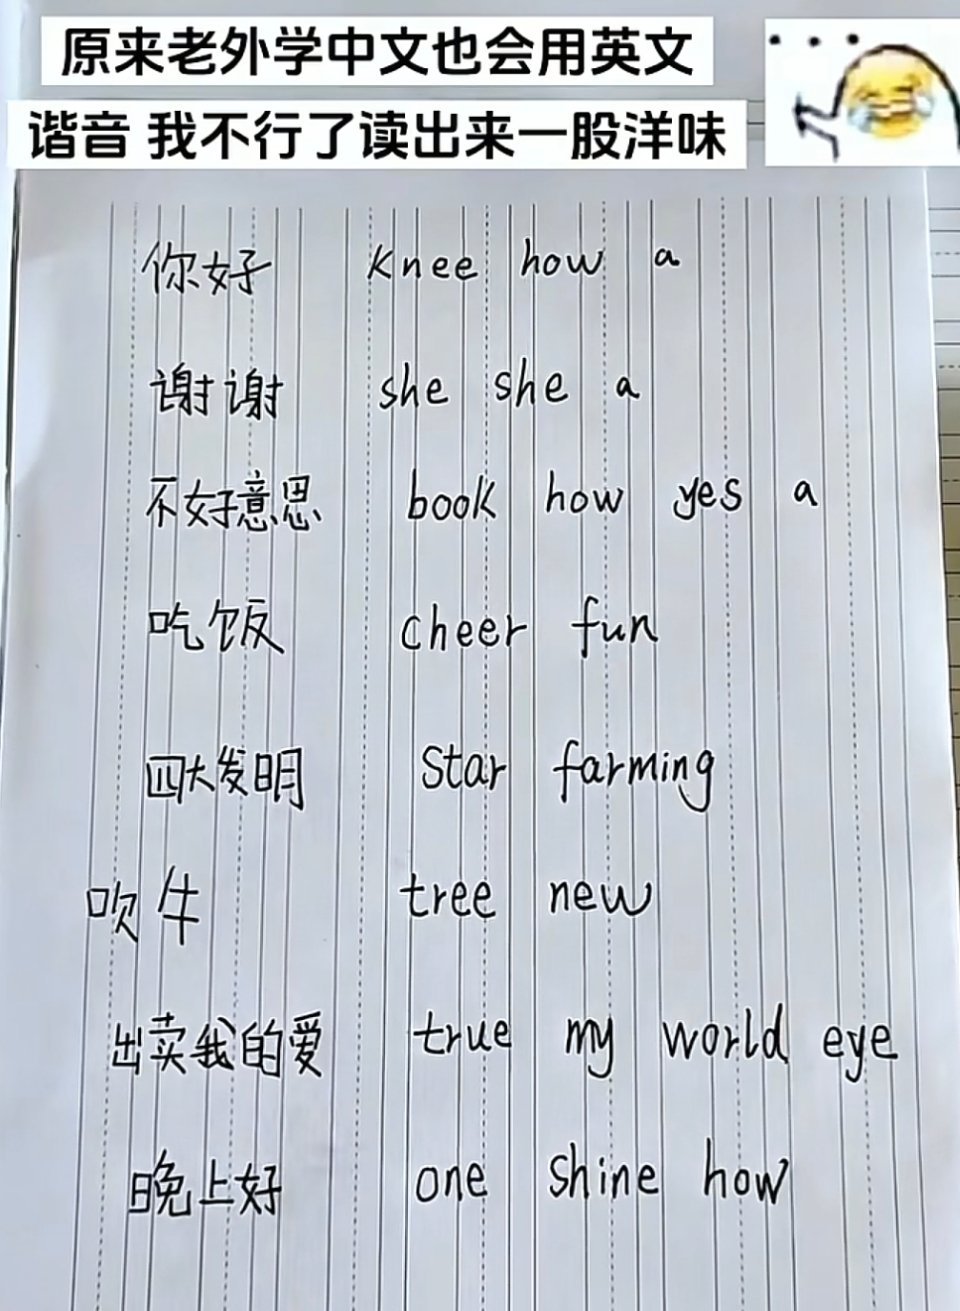 原来老外学中文也会用英文
谐音 我不行了读出来一股洋味
你好 knee how a
谢谢 she she a
不好意思 book how yes a
吃饭 cheer fun
四大发明 Star farming
吹牛 tree new
出卖我的爱 true my world eye
晚上好 one shine how